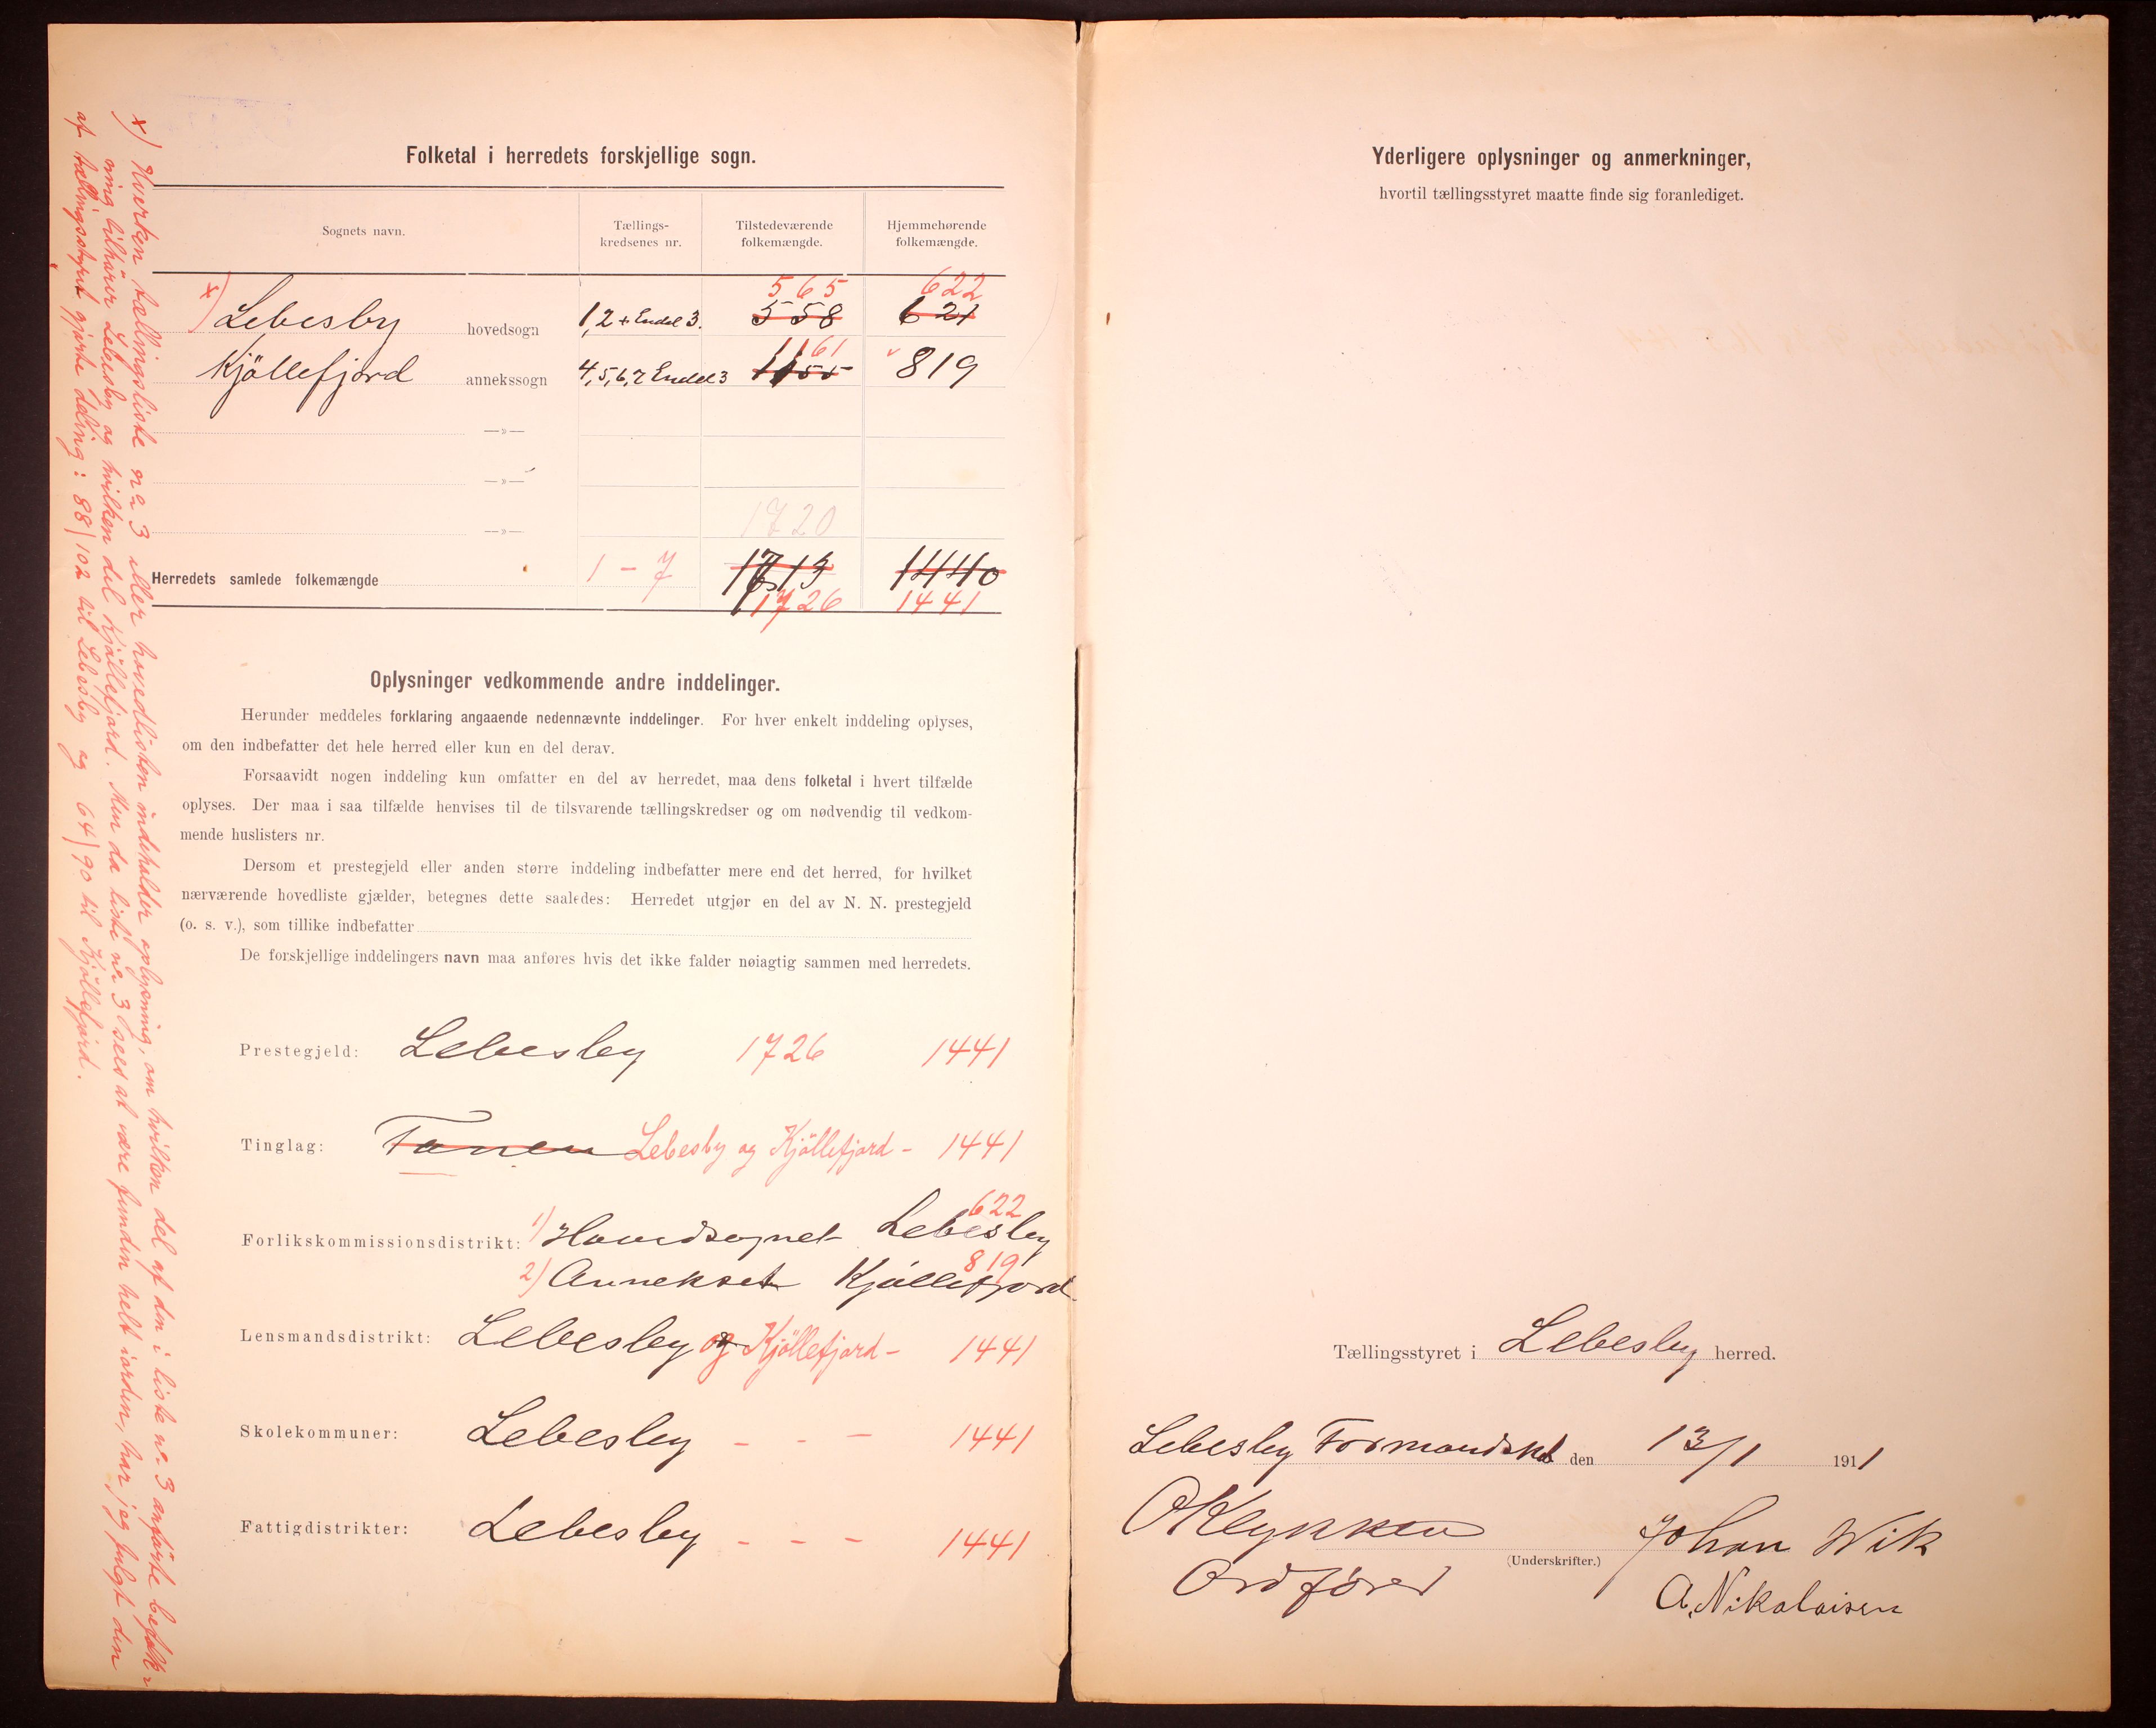 Folketal i herredets forskjellige sogn.
Sognets navn.
Tællings-
kredsenes nr.
Tilstedeværende
folkemængde.
Hjemmehørende
folkemængde.
565 622
x) Lebesby hovedsogn 1,2 + Endel 3. 558 621
1161
Kjöllefjord annekssogn 4,5,6,7 Endel 3 1155 819
—»—
—»—
—»— 1720
Herredets samlede folkemængde 1 - 7 1713 1440
1726 1441
Oplysninger vedkommende andre inddelinger.
Herunder meddeles forklaring angaaende nedennævnte inddelinger. For hver enkelt inddeling oplyses,
om den indbefatter det hele herred eller kun en del derav.
Forsaavidt nogen inddeling kun omfatter en del av herredet, maa dens folketal i hvert tilfælde
oplyses. Der maa i saa tilfælde henvises til de tilsvarende tællingskredser og om nødvendig til vedkom-
mende huslisters nr.
Dersom et prestegjeld eller anden større inddeling indbefatter mere end det herred, for hvilket
nærværende hovedliste gjælder, betegnes dette saaledes: Herredet utgjør en del av N. N. prestegjeld
(o. s. v.), som tillike indbefatter
De forskjellige inddelingers navn maa anføres hvis det ikke falder nøiagtig sammen med herredets.
Prestegjeld: Lebesby 1726 1441
Tinglag: Tanen Lebesby og Kjöllefjord - 1441
622
Forlikskommissionsdistrikt: 1) Hovedsognet Lebesby
819
2) Annekset Kjöllefjord
Lensmandsdistrikt: Lebesby og Kjöllefjord - 1441
Skolekommuner: Lebesby - - - 1441
Fattigdistrikter: Lebesby - - - 1441
x) Hverken tællingsliste no 3 eller hovedlisten indeholder oplysning, om hvilken del af den i liste no 3 anförte befolk-
ning tilhörer Lebesby og hvilken del Kjöllefjord. Men da liste no 3 sees at være funden helt iorden, har jeg fulgt den
af tællingsstyret gjorte deling: 88/102 til Lebesby og 64/90 til Kjöllefjord.
Yderligere oplysninger og anmerkninger,
hvortil tællingsstyret maatte finde sig foranlediget.
Tællingsstyret i Lebesby herred.
Lebesby Formandskb den 13/1 1911
Johan Wik
(Underskrifter.)
Ordförer
A. Nikolaisen